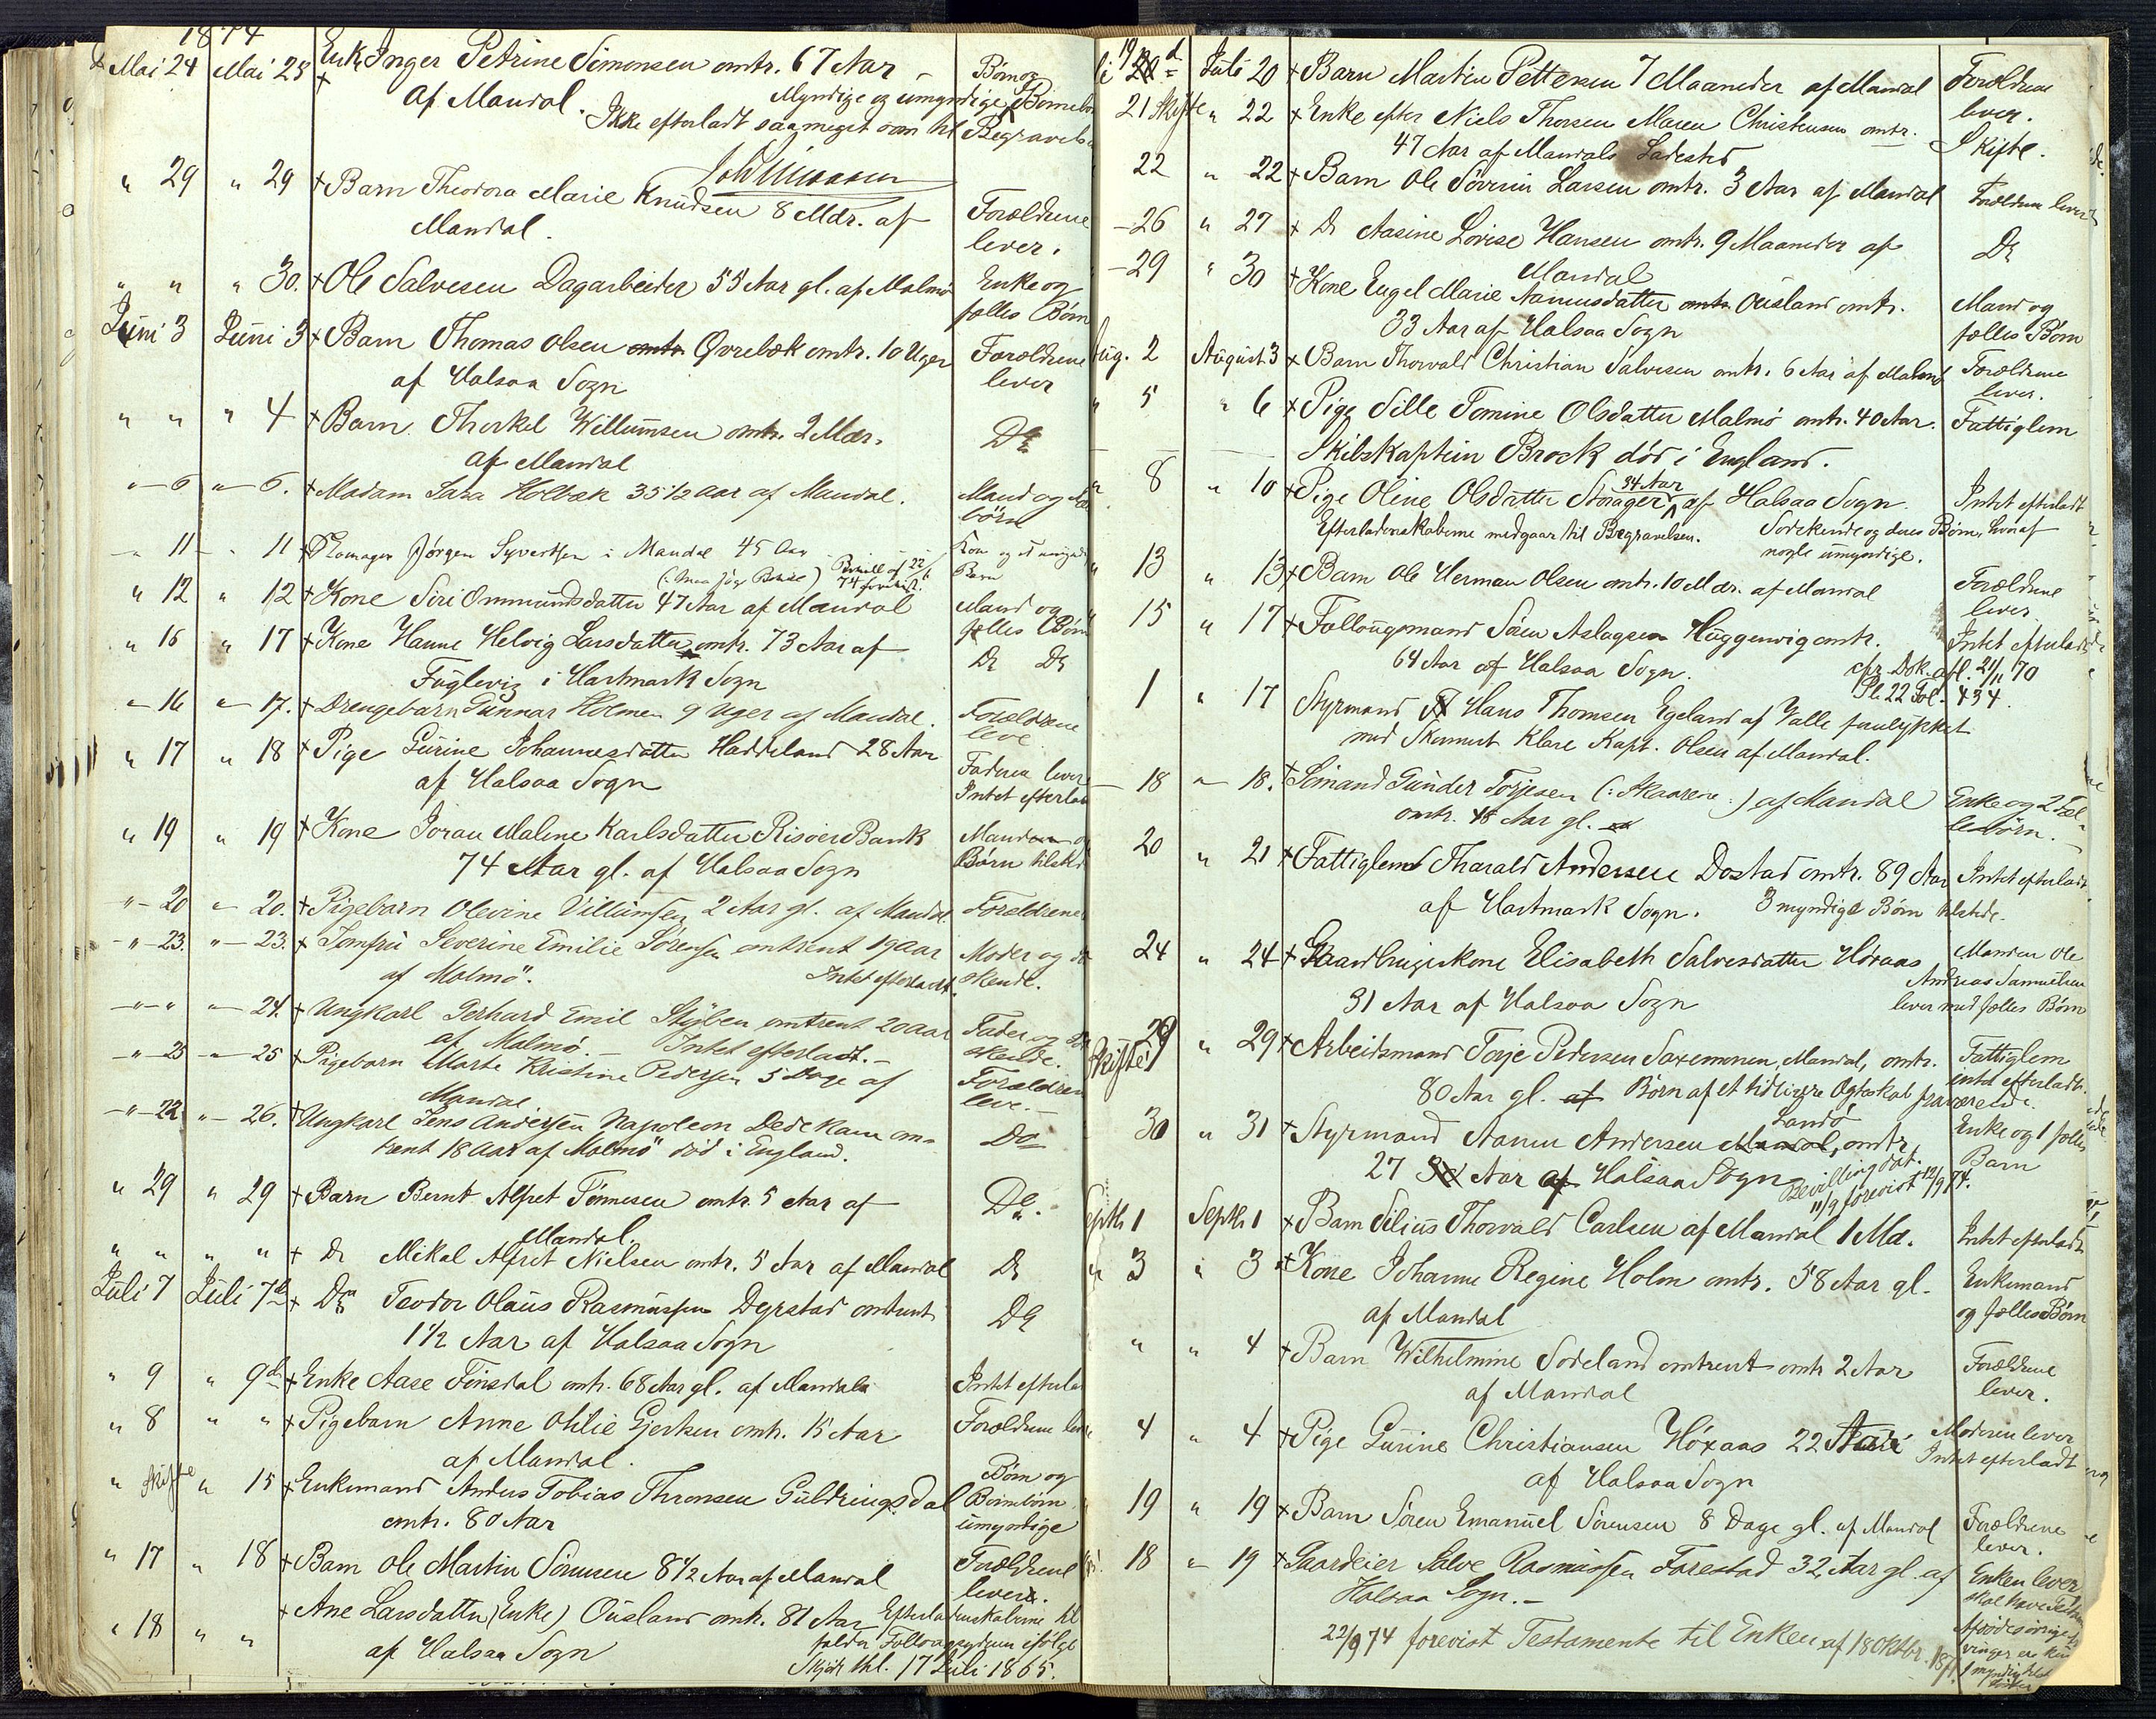 1874
Mai 24 Mai 28 Enke Inger Petrine Simonsen omtr. 67 Aar Børn og
af Mandal. Myndige og umyndige Børnebørn
Ikke efterladt saa meget som til Begravelse
" 29 " 29 + Barn Theodora Marie Knudsen 8 Mdr. af Forældrene
Mandal. lever.
" " " 30. + Ole Salvesen Dagarbeider 55 Aar gl. af Malmø Enke og
fælles Børn
Juni 3 Juni 3 + Barn Thomas Olsen omtr. Øvrebæk omtr. 10 Uger Forældrene
af Halsaa Sogn lever
" " " 4 + Barn Therkel Willumsen omtr. 2 Mdr. Do
af Mandal
" 6 " 6. + Madam Sara Holbæk 35 1/2 Aar af Mandal. Mand og
børn
" 11 " 11 + Jørgen Syvertsen i Mandal 45 Aar
Barn
" 12 " 12 + Kone Siri Ommundsdatter 47 Aar af Mandal Mand og
fælles Børn
" 16 " 17 + Kone Hanne Helvig Larsdatter omtr. 73 Aar af Do Do
Fuglevig i Hartmark Sogn
" 16 " 17. + Drengebarn Gunnar Holmen 9 Uger af Mandal. Forældrene
leve
" 17 " 18 + Pige Gurine Johannesdatter Haddeland 28 Aar Faderen lever
af Halsaa Sogn Intet efterladt
" 19 " 19 + Kone Joran Maline Karlsdatter Risøer Bank Mand
74 Aar gl. af Halsaa Sogn Børn tilstede
" 20 " 20. + Pigebarn Olevine Villumsen 2 Aar gl. af Mandal. Forældrene
" 23. " 23. + Jomfru Severine Emilie Sørensen omtrent 19 aar Moder og
af Malmö. Intet efterladt. skende.
" " " 24. + Ungkarl Gerhard Emil Styben omtrent 20 aar Fader og
af Malmø. - Intet efterladt. - skende.
" 25 " 25 + Pigebarn Marte Kristine Pedersen 5 Dage af Forældrene
Mandal leve. -
" 22 " 26. + Ungkarl Jens Andersen Napoleon Dedekam om- Do
trent 18 Aar af Malmö död i England.
" 29 " 29 + Barn Bernt Alfret Tønnesen omtr. 5 Aar af Do.
Mandal.
" " " " + Do Mikal Alfret Nielsen omtr. 5 Aar af Mandal Do
Juli 7 Juli 7d + Do Teodor Olaus Rasmussen Dyrstad omtrent Do
1 1/2 Aar af Halsaa Sogn
" 9 " 9d + Enke Aase Finsdal omtr. 68 Aar gl. af Mandal Intet efterladt
" 8 " " + Pigebarn Anne Othlie Gjertsen omtr. 15 Aar Forældrene lever
af Mandal.
" Skifte " 15 + Enkemand Anders Tobias Thronsen Guldringsdal Børn og
omtr. 80 Aar Børnebørn
umyndige
" 17 " 18 + Barn Ole Martin Sörensen 8 1/2 Aar af Mandal Forældrene
lever.
" 18 " " + Ane Larsdatter (Enke) Ousland omtr. 81 Aar Efterladenskaberne til
af Halsaa Sogn ifølge
Skjøde thl. 17 Juli 1865.
19 Juli 20 + Barn Martin Pettersen 7 Maaneder af Mandal Forældrene
lever.
21 Skifte " 22 + Enke efter Niels Thorsen Maren Christensen omtr. Skifte.
47 Aar af Mandals Ladested
22 " 22 + Barn Ole Severin Larsen omtr. 3 Aar af Mandal Forældrene lever
- 26 " 27 + Do Aasine Lovise Hansen omtr. 9 Maaneder af Do
Mandal
- 29 " 30 + Kone Engel Marie Aanensdatter omtr. Ousland omtr. Mand og
33 Aar af Halsaa Sogn fælles Børn
Aug. 2 August 3 + Barn Thorvald Christian Salvesen omtr. 6 Aar af Malmø Forældrene
lever.
" 5 " 6 + Pige Sille Tomine Olsdatter Malmö omtr. 40 Aar. Fattiglem
Skibskaptein Brock död i England.
" 8 " 10 + Pige Oline Olsdatter Storager 34 Aar af Halsaa Sogn. Intet efterladt
Efterladenskaberne medgaar til Begravelsen. Sødskende og deres Børn, hvoraf
nogle umyndige.
13 " 13 + Barn Ole Herman Olsen omtr. 10 Mdr. af Mandal Forældrene
lever
15 " 17 + Follougsmand Sören Aslagsen Huggenvig omtr. Intet efterladt
64 Aar af Halsaa Sogn. cfr. Dok. afl. 21/11 70
Pl. 22 Fol. 434.
1 " 17 Styrmand Hans Thomsen Egeland af Valle forulykket
med Skonnert Klare Kapt. Olsen af Mandal.
- 18 " 18. + Sömand Gunder Torjesen (: Skaarene :) af Mandal Enke og 2 Fæl-
omtr. 48 Aar gl. lesbörn.
20 " 21 + Fattiglem Tharald Andersen Dostad omtr. 89 Aar Intet efterladt
af Hartmark Sogn. 3 myndige Börn tilstede.
24 " 24 + Gaardbrugerkone Elisabeth Salvesdatter Höxaas Manden Ole
Andreas Samuelsen
31 Aar af Halsaa Sogn lever med fælles Børn
29 Skifte " 29 + Arbeidsmand Torje Pedersen Saxemoen, Mandal, omtr. Fattiglem
80 Aar gl. af Börn af et tidligere Ægteskab fraværende. intet efterladt.
30 " 31 + Styrmand Aanen Andersen Mandal, Landö omtr. Enke og 1 fælles
27 Aar af Halsaa Sogn Bevilling dat. Barn
11/9 forevist 12/9 74.
Septbr 1 Septbr 1 + Barn Silius Thorvald Carlsen af Mandal 1 Md. Intet efterladt
" 3 " 3 + Kone Johanne Regine Holm omtr. 58 Aar gl. Enkemand
af Mandal og fælles Børn
" " 4 + Barn Wilhelmine Sodeland omtrent omtr 2 Aar Forældrene
af Mandal lever.
4 " 4 + Pige Gurine Christiansen Höxaas 22 Aar Moderen lever
af Halsaa Sogn Intet efterladt
19 " 19 + Barn Sören Emanuel Sörensen 8 Dage gl. af Mandal Forældrene
lever.
18 " 19 + Gaardeier Salve Rasmussen Forestad 32 Aar gl. af Enken lever
Halsaa Sogn. - skal have
22/9 74 forevist Testamente til Enken af 18 Oktbr. 187